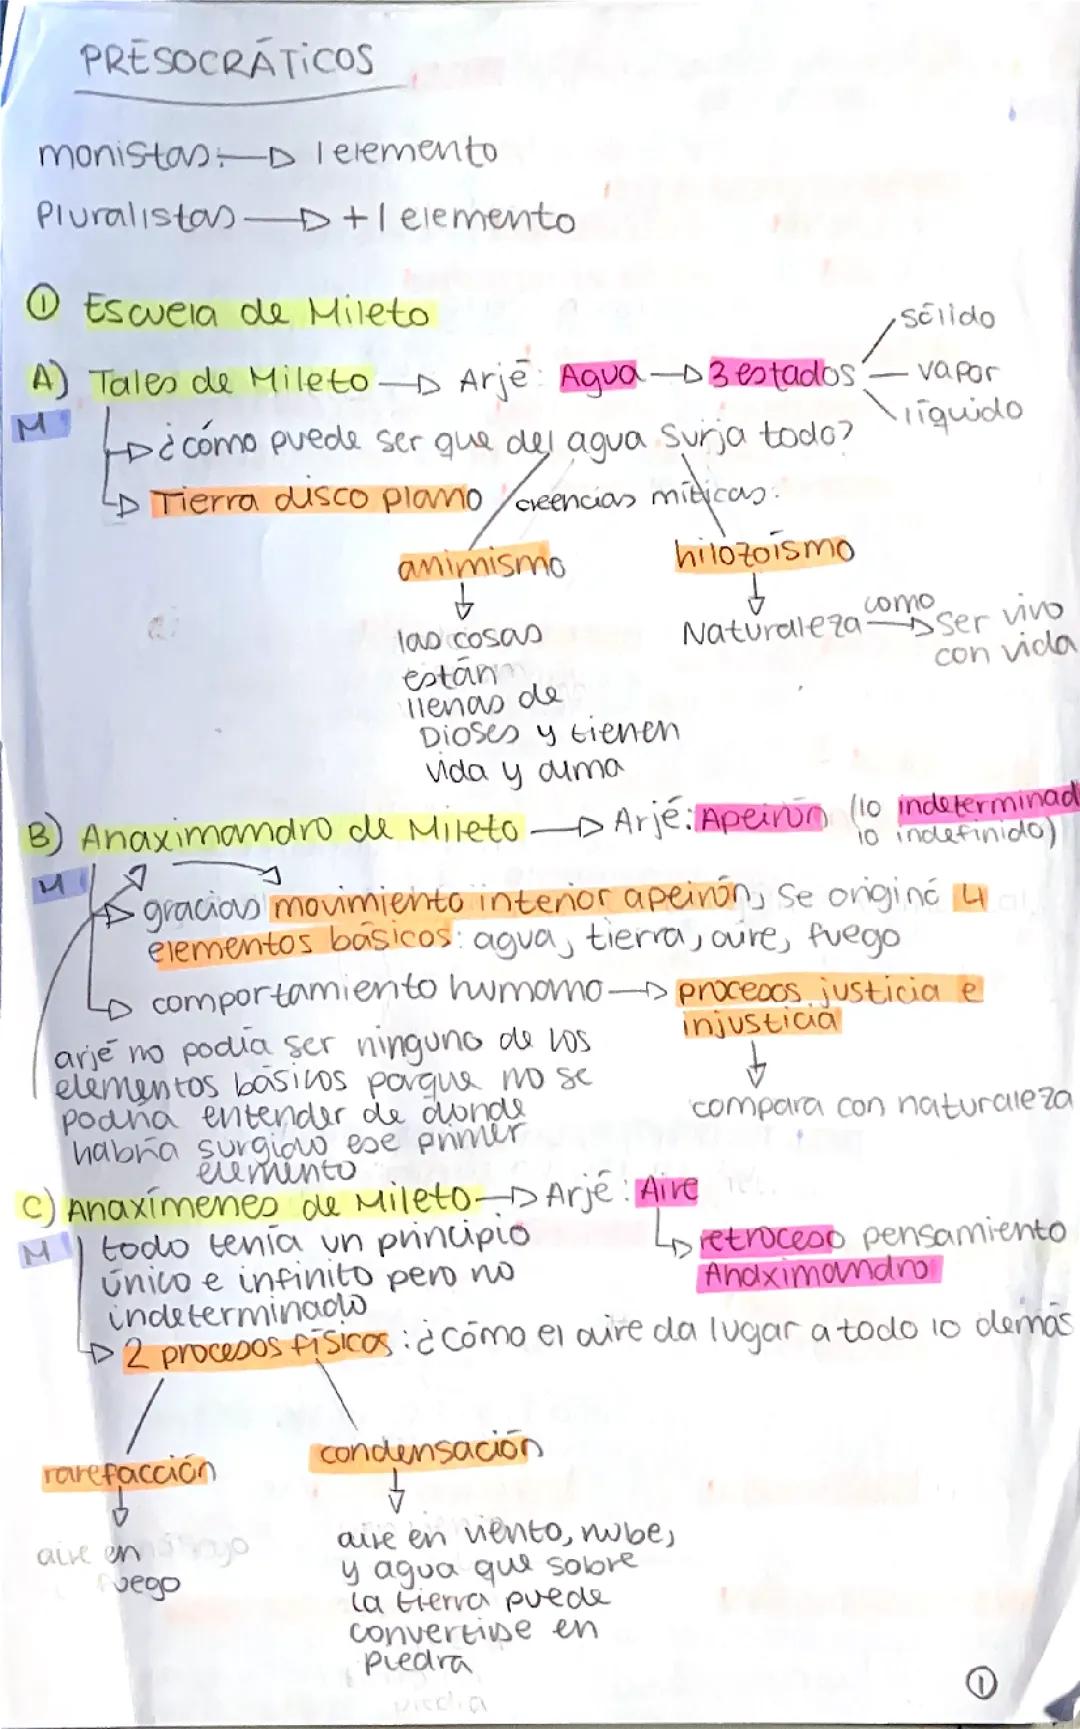 PRESOCRÁTICOS
monistas: → 1 elemento
Pluralistas → +1 elemento
① Escuela de Mileto
A) Tales de Mileto → Arjé: Agua → 3 estados
sólido
vapor
líquido
M
→ ¿cómo puede ser que del agua surja todo?
→ Tierra disco plano
creencias míticas:
animismo
hilozoísmo
las cosas
están
llenas de
Dioses y tienen
vida y alma
Naturaleza como → ser vivo
con vida
B) Anaximandro de Mileto → Arjé: Apeirón (lo indeterminad
lo indefinido)
M
→ gracias movimiento interior apeirón, se originó 4
elementos básicos: agua, tierra, aire, fuego
→ comportamiento humano → procesos justicia e
injusticia
compara con naturaleza
arjé no podía ser ninguno de los
elementos básicos porque no se
podría entender de donde
habría surgido ese primer
elemento
C) Anaxímenes de Mileto → Arjé: Aire
→ retroceso pensamiento
Anaximandro
M
todo tenía un principio
único e infinito pero no
indeterminado
→ 2 procesos físicos: ¿Cómo el aire da lugar a todo lo demás
rarefacción
condensación
aire en
fuego
aire en viento, nube,
y agua que sobre
la tierra puede
convertirse en
piedra
①